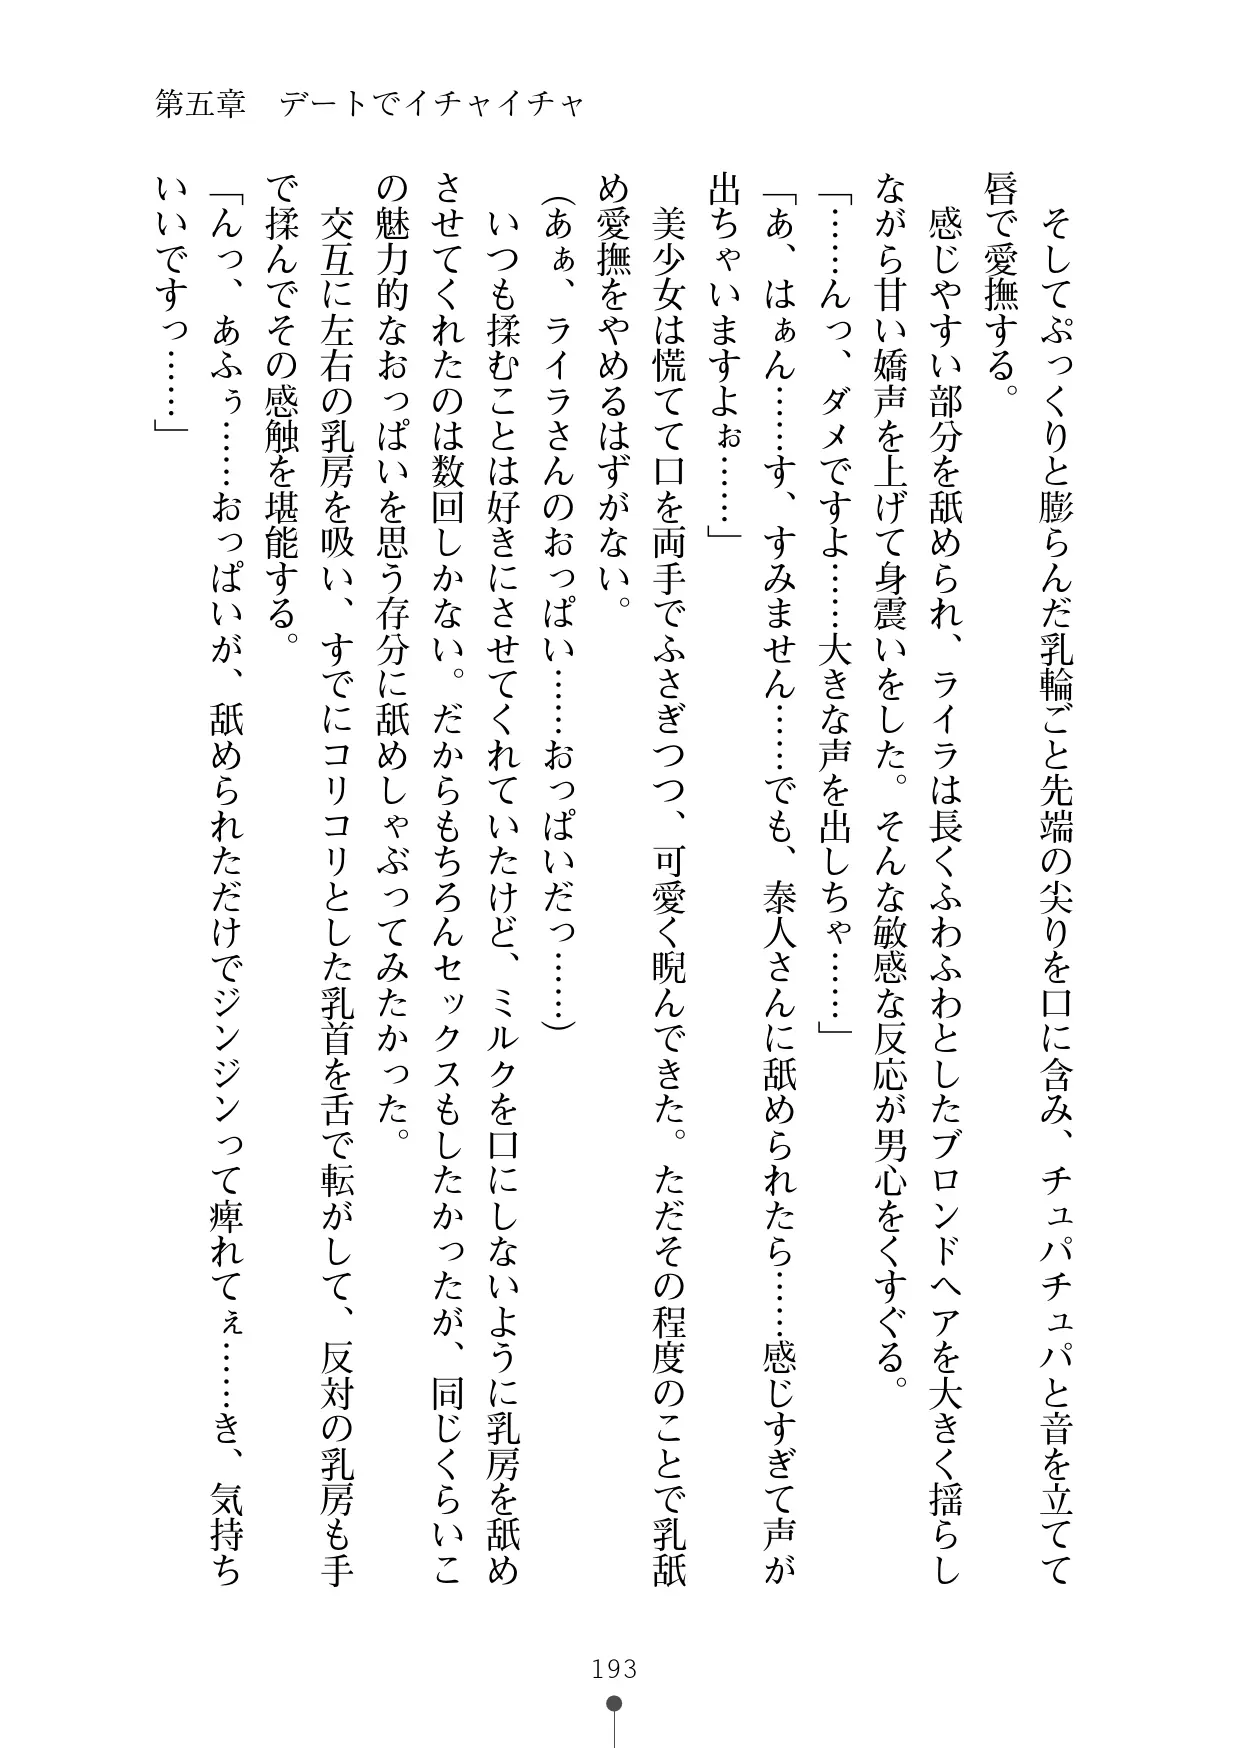 第五章　デートでイチャイチャ
そしてぷっくりと膨らんだ乳輪ごと先端の尖りを口に含み、チュパチュパと音を立てて
唇で愛撫する。
感じやすい部分を舐められ、ライラは長くふわふわとしたブロンドヘアを大きく揺らし
ながら甘い嬌声を上げて身震いをした。そんな敏感な反応が男心をくすぐる。
「……んっ、ダメですよ……大きな声を出しちゃ……」
「あ、はぁん……す、すみません……でも、泰人さんに舐められたら……感じすぎて声が
出ちゃいますよぉ……」
美少女は慌てて口を両手でふさぎつつ、可愛く睨んできた。ただその程度のことで乳舐
め愛撫をやめるはずがない。
（あぁ、ライラさんのおっぱい……おっぱいだっ……）
いつも揉むことは好きにさせてくれていたけど、ミルクを口にしないように乳房を舐め
させてくれたのは数回しかない。だからもちろんセックスもしたかったが、同じくらいこ
の魅力的なおっぱいを思う存分に舐めしゃぶってみたかった。
交互に左右の乳房を吸い、すでにコリコリとした乳首を舌で転がして、反対の乳房も手
で揉んでその感触を堪能する。
「んっ、あふぅ……おっぱいが、舐められただけでジンジンって痺れてぇ……き、気持ち
いいですっ……」
193